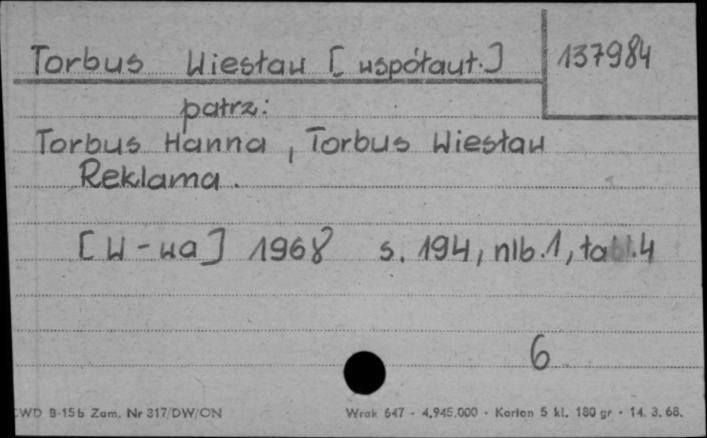 Torbus Wiesław [współaut.] 137984
patrz:
Torbus Hanna, Torbus Wiesław
Reklama.
[W-wa] 1968 s. 194, nlb. 1, tabl. 4
6
CWD B-15b Zam. Nr 317/DW/ON Wrak 647 - 4.945.000 - Karton 5 kl. 180 gr - 14. 3. 68.